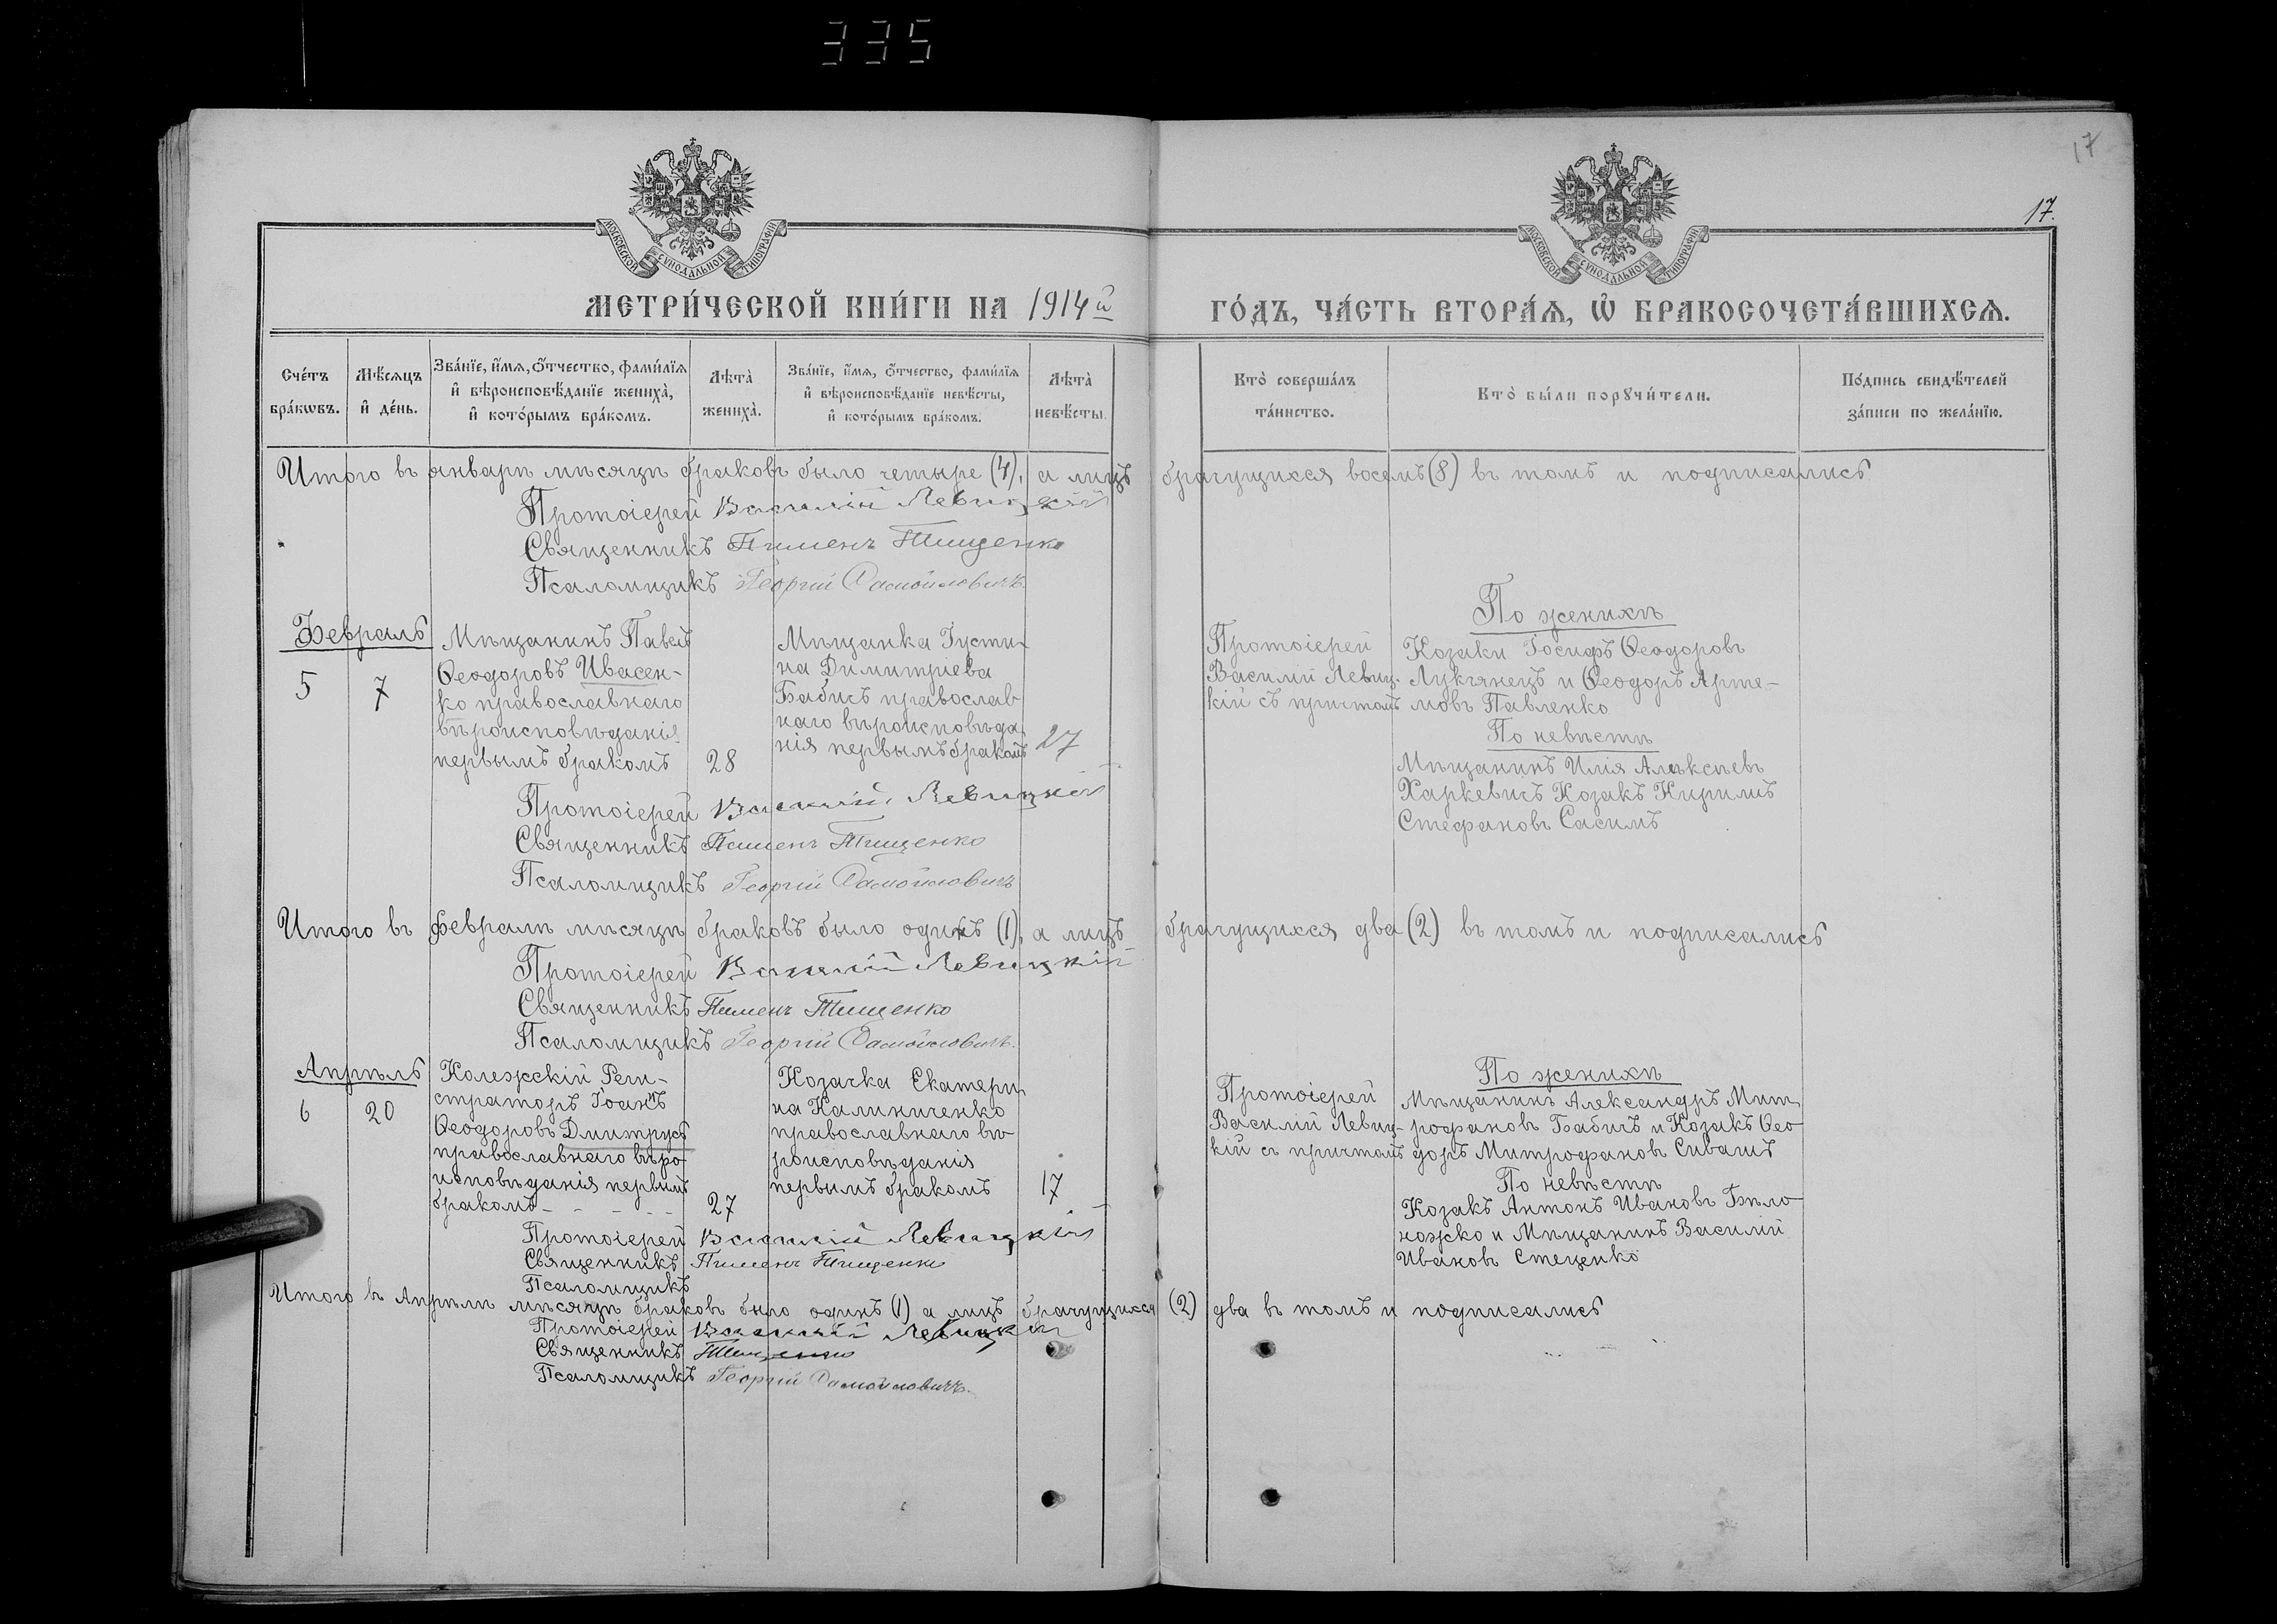 335
17
17.
МОСКОВСКОЙ СѴНОДАЛЬНОЙ ТИПОГРАФІИ
МОСКОВСКОЙ СѴНОДАЛЬНОЙ ТИПОГРАФІИ
МЕТРИ́ЧЕСКОЙ КНИ́ГИ НА 1914й ГО́ДЪ, ЧА́СТЬ ВТОРА́Ѧ, Ѡ҆ БРАКОСОЧЕТА́ВШИХСѦ.
Сче́тъ бра́кѡвъ.
Мѣ́сяцъ и҆ де́нь.
Зва́нїе, и҆́мѧ, ѻ҆́тчество, фами́лїѧ и҆ вѣроисповѣ́данїе женихà, и҆ кото́рымъ бра́комъ.
Лѣтà женихà.
Зва́нїе, и҆́мѧ, ѻ҆́тчество, фами́лїѧ и҆ вѣроисповѣ́данїе невѣ́сты, и҆ кото́рымъ бра́комъ.
Лѣтà невѣ́сты.
Ктò соверша́лъ та́инство.
Ктò бы́ли порꙋчи́тели.
По́дпись свидѣ́телей за́писи по жела́нїю.
Итого въ январѣ мѣсяцѣ браковъ было четыре (4), а лицъ брачущихся восемь (8) въ томъ и подписались
Протоіерей Василій Левицкій
Священникъ Пименъ Тищенко
Псаломщикъ Георгій Самойловичъ.
Февраль
5
7
Мѣщанинъ Павелъ
Ѳеодоровъ Ивасен-
ко православнаго
вѣроисповѣданія
первымъ бракомъ
28
Мѣщанка Іусти-
на Димитріева
Бабичъ православ-
наго вѣроисповѣда-
нія первымъ бракомъ
27
Протоіерей
Василій Левиц-
кій съ причтомъ
По женихѣ
Козаки Іосифъ Ѳеодоровъ
Лукъянецъ и Ѳеодоръ Арте-
мовъ Павленко
По невѣстѣ
Мѣщанинъ Илія Алексѣевъ
Харкевичъ Козакъ Кирилъ
Стефановъ Сасимъ
Протоіерей Василій Левицкій
Священникъ Пименъ Тищенко
Псаломщикъ Георгій Самойловичъ
Итого въ февралѣ мѣсяцѣ браковъ было одинъ (1), а лицъ брачущихся два (2) въ томъ и подписались
Протоіерей Василій Левицкій
Священникъ Пименъ Тищенко
Псаломщикъ Георгій Самойловичъ.
Апрѣль
6
20
Колежскій Реги-
страторъ Іоанъ
Ѳеодоровъ Дмитрусь
православнаго вѣро-
исповѣданія первымъ
бракомъ - - - - -
27
Козачка Екатери-
на Калиниченко
православнаго вѣ-
роисповѣданія
первымъ бракомъ
17
Протоіерей
Василій Левиц-
кій съ причтомъ
По женихѣ
Мѣщанинъ Александръ Мит-
рофановъ Бабичъ и Козакъ Ѳео-
доръ Митрофановъ Сивашъ
По невѣстѣ
Козакъ Антонъ Ивановъ Бѣло-
ножко и Мѣщанинъ Василій
Ивановъ Стеценко
Протоіерей Василій Левицкій
Священникъ Пименъ Тищенко
Псаломщикъ
Итого въ Апрѣлѣ мѣсяцѣ браковъ было одинъ (1) а лицъ брачущихся (2) два въ томъ и подписались
Протоіерей Василій Левицкій
Священникъ Тищенко
Псаломщикъ Георгій Самойловичъ.